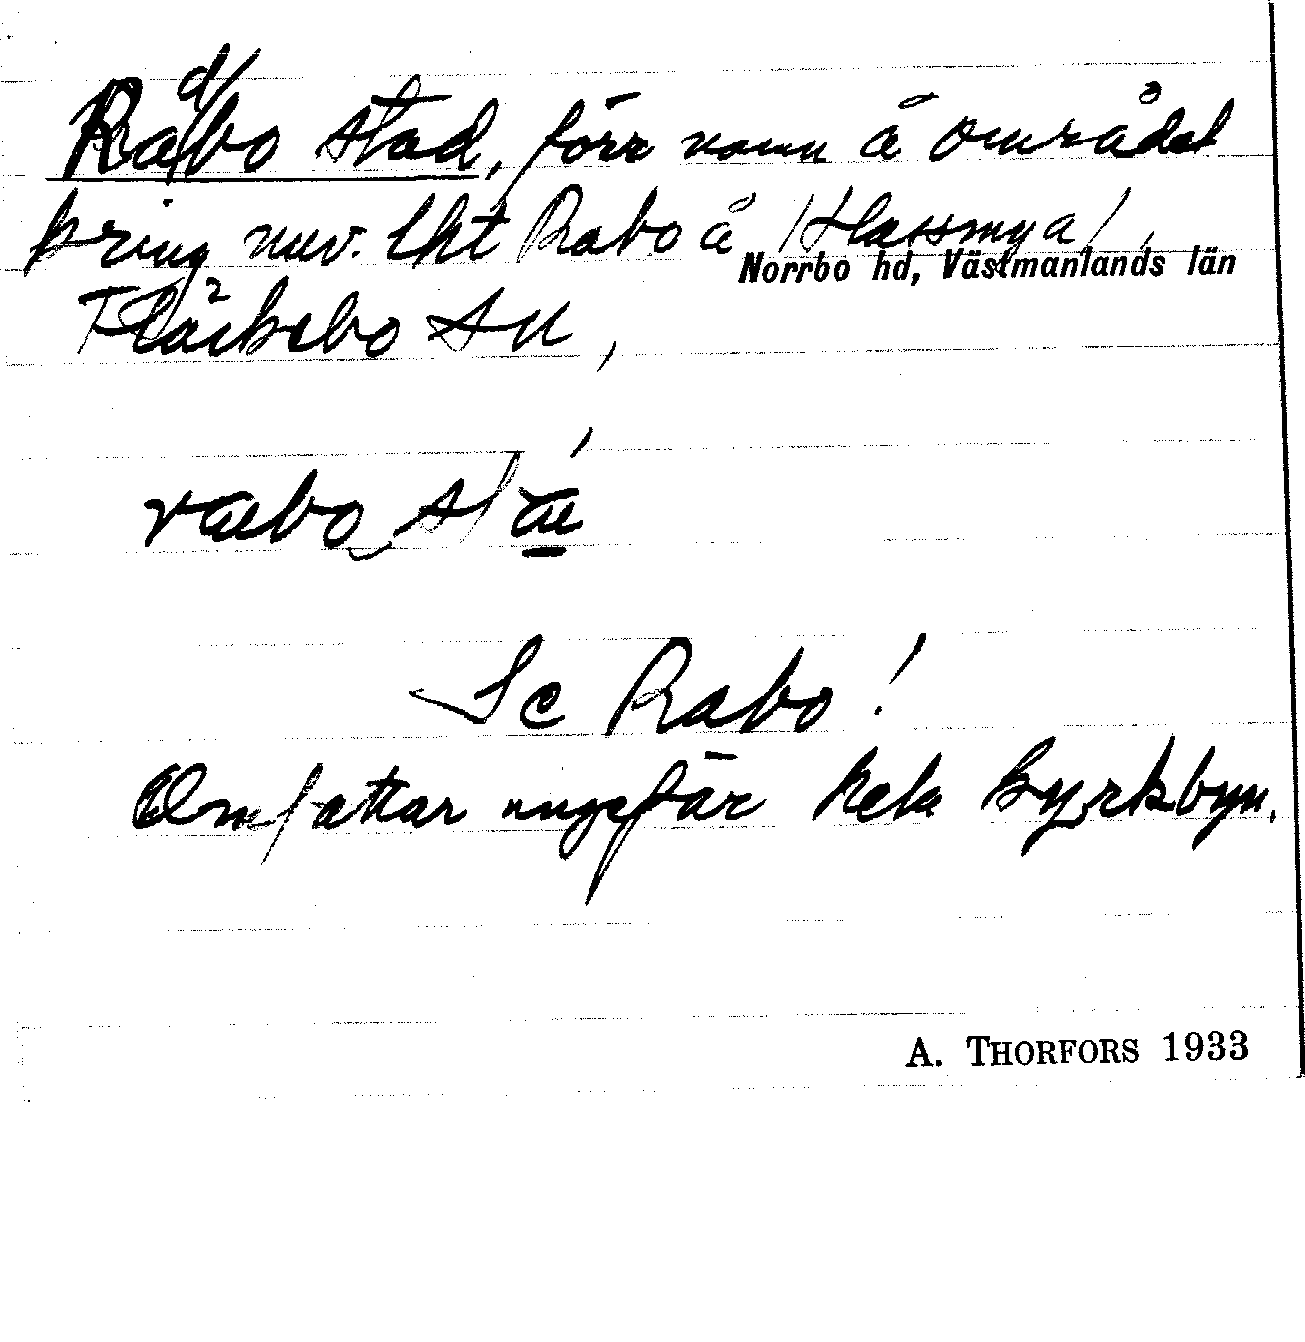 Ra/d/bo stad, förr namn å området
kring nuv. lht Rabo å /Hassmya/,
Norrbo hd, Västmanlands län
Fläckebo sn,
rabo sta
Se Rabo!
Omfattar ungefär hela Kyrkbyn.
A. THORFORS 1933